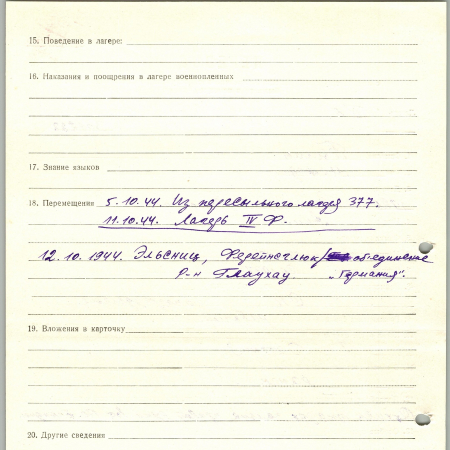 15. Поведение в лагере:
16. Наказания и поощрения в лагере военнопленных
17. Знание языков
18. Перемещения 5.10.44. Из пересыльного лагеря 377.
11.10.44. Лагерь IV Ф.
12.10.1944. Эльсниц, объединение
р-н Глаухау. „Германия“.
19. Вложения в карточку
20. Другие сведения